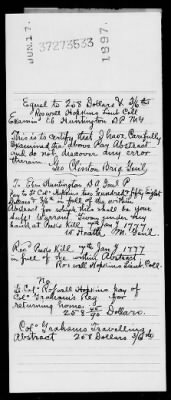 JUN.17.
37273533
1897.
Equal to 258 Dollars & 3/6ths
Roswell Hopkins Lieut Coll
Examin'd Eb Huntington D P M G
This is to certify that I have Carefully
Examined the above Pay Abstract
and do not discover any error
therein
Geo Clinton Brig Genl
To Eben Huntington D P
Pay to Lt Col Hopkins two hundred fifty Eight
Dollars 3/6ths in full of the within
Abstract for which this shall be your
Sufft Warrant Given under my
hand at Peeks Kill 7th Jany 1777
W Heath M. Genl
Recd Peeks Kill 7th Jany 1777
in full of the within Abstract
Roswell Hopkins Lieut. Coll.
No
Lt Col Roswell Hopkins pay of
Col Grahams Reg for
returning home.
258 Dollars.
Colo Grahams Travelling
Abstract 258 Dollars